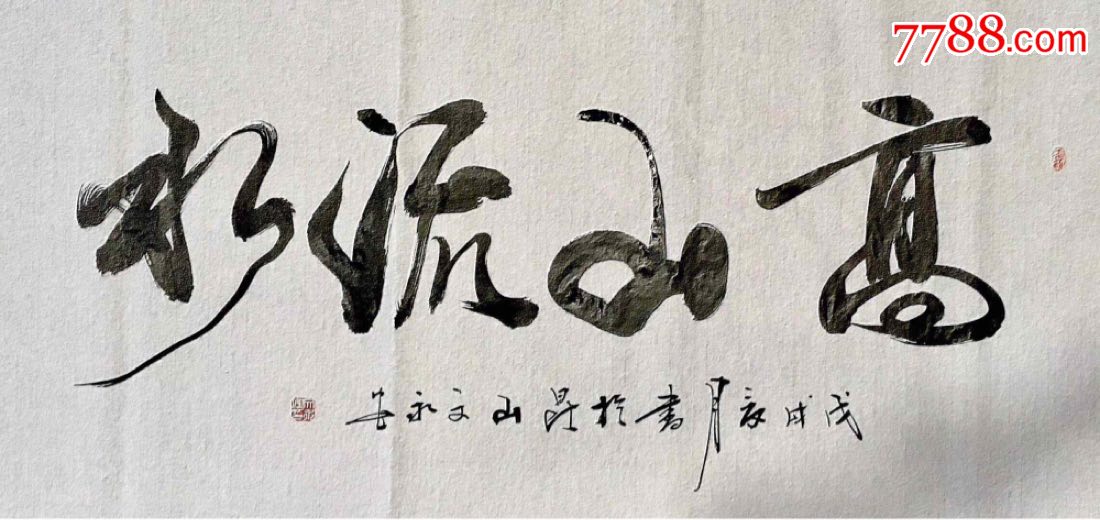 7788.com
高山流水
戊戌夏月書於昆山文永安